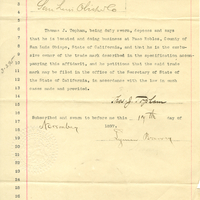 San Luis Obispo Co.
Thomas J. Topham, being duly sworn, deposes and says
that he is located and doing business at Paso Robles, County of
San Luis Obispo, State of California, and that he is the exclu-
sive owner of the trade mark described in the specification accom-
panying this affidavit, and he petitions that the said trade
mark may be filed in the office of the Secretary of State of the
State of California, in accordance with the law in such
cases made and provided.
Thos J. Topham
Subscribed and sworn to before me this 19th day of
November 1897.